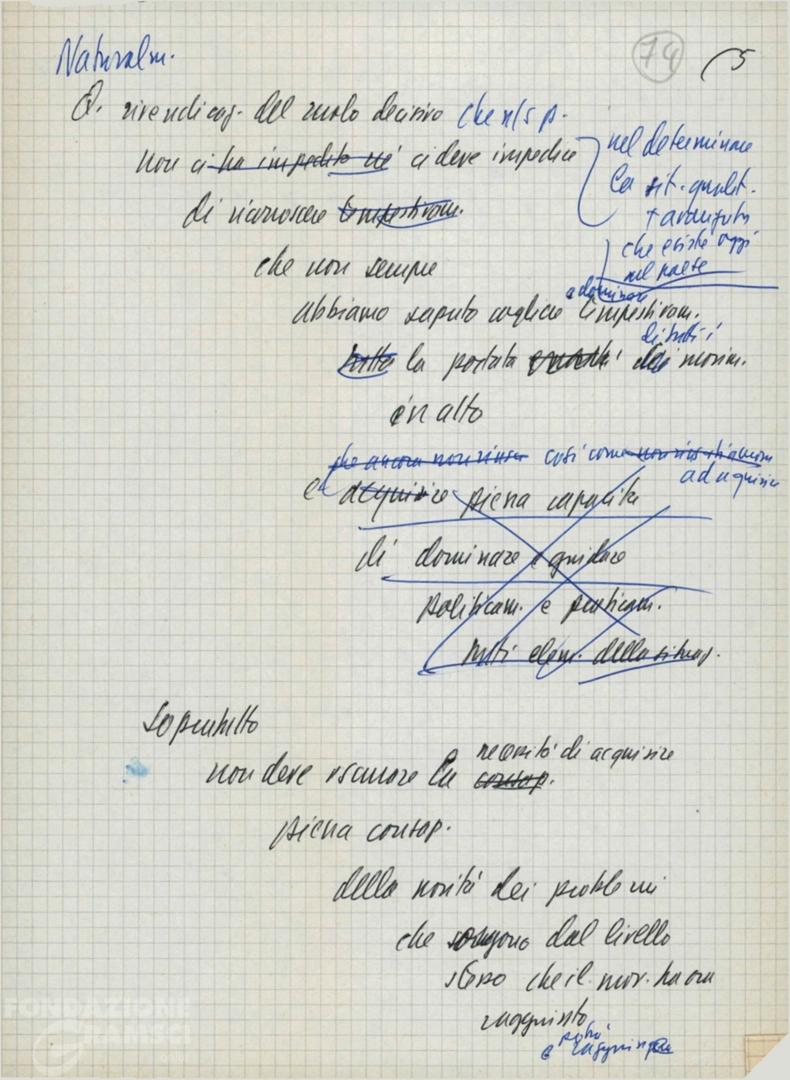 74
5
Naturalm.
Q. rivendicaz. del ruolo decisivo che n/s p.
non ci ha impedito né ci deve impedire
nel determinare
la sit. qualit.
+ avanzata
che esiste oggi
nel paese
di riconoscere tempestivam.
che non sempre
abbiamo saputo cogliere tempestivam.
tutta la portata di tutti i dei movim.
in alto
che ancora non così come
ad acquisire
e acquisire piena capacità
di dominare e guidare
politicam. e praticam.
tutti elem. della situaz.
Soprattutto
necessità di acquisire
non deve oscurare la consap.
piena consap.
della novità dei problemi
che sorgono dal livello
stesso che il mov. ha ora
raggiunto
e potrà raggiungere
FONDAZIONE